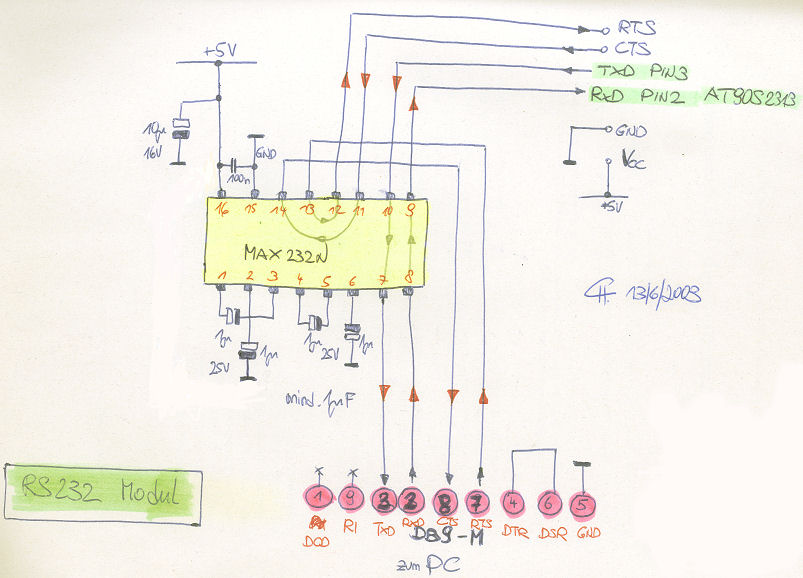 RTS
CTS
TXD PIN3
RXD PIN2 AT90S2313
+5V
10µ
16V
GND
100n
GND
VCC
+5V
16 15 14 13 12 11 10 9
MAX 232N
1 2 3 4 5 6 7 8
1µ
1µ
25V
1µ
25V
1µ
13/6/2003
mind. 1µF
RS232 Modul
1 9 3 2 8 7 4 6 5
DCD RI TXD RXD CTS RTS DTR DSR GND
DB9-M
zum PC